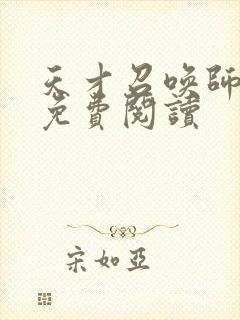 天才召喚師
免費閱讀
宋如亞